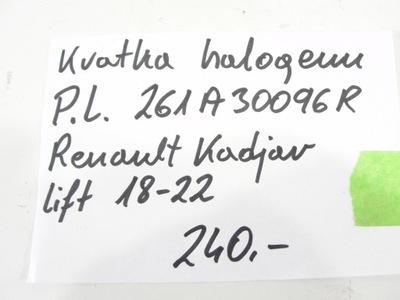 Kratka halogenu
P.L. 261A30096R
Renault Kadjar
lift 18-22
240.-